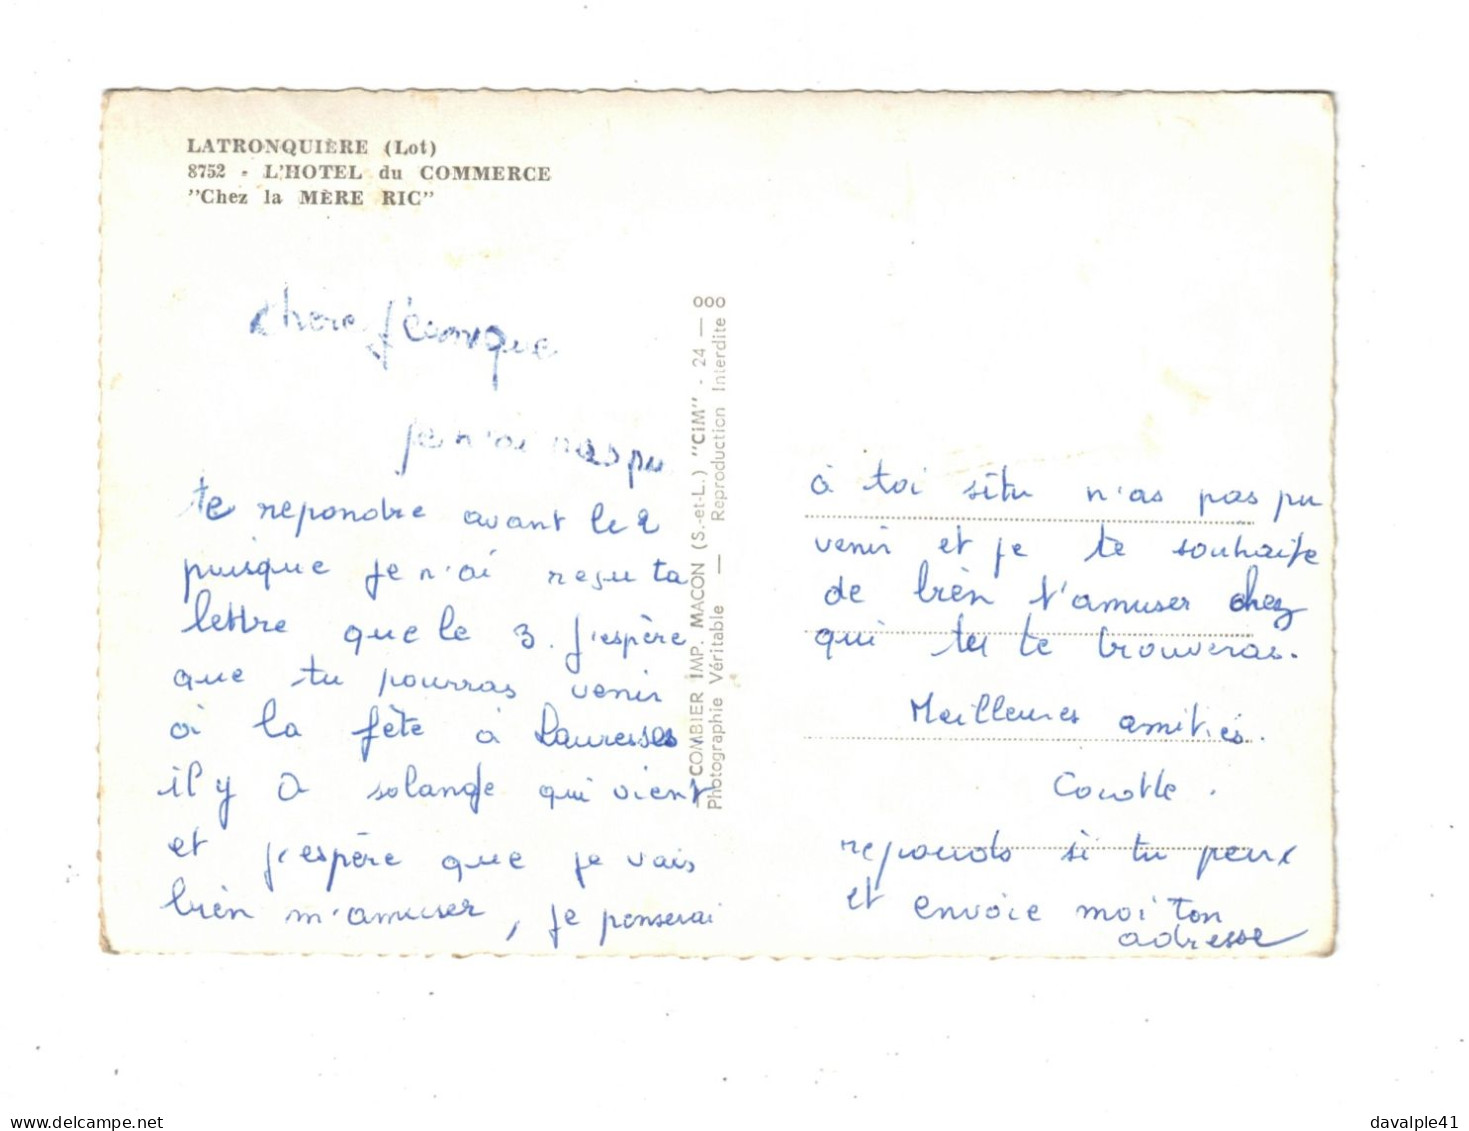 LATRONQUIÈRE (Lot)
8752 - L'HOTEL du COMMERCE
"Chez la MÈRE RIC"
chère
je n'ai pas pu
te repondre avant le 2
puisque je n'ai reçu ta
lettre que le 3. J'espère
que tu pourras venir
à la fête à Lauresses
il y a solange qui vient
et j'espère que je vais
bien m'amuser, je penserai
COMBIER IMP. MACON (S.-et-L.) "CIM" - 24 — 000
Photographie Véritable — Reproduction Interdite
à toi si tu n'as pas pu
venir et je te souhaite
de bien t'amuser chez
qui tu te trouveras.
Meilleures amitiés.
reponds si tu peux
et envoie moi ton
adresse
delcampe.net
davalple41